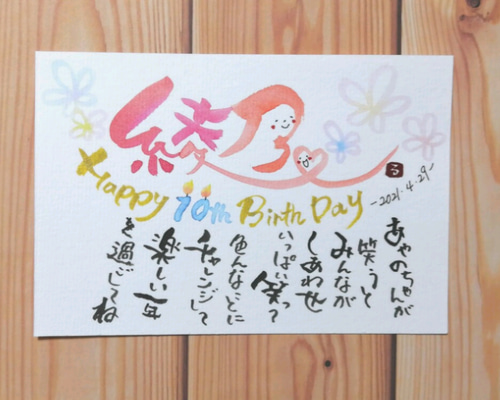 綾乃
Happy 10th Birth Day
-2021.4.29-
る
あやのちゃんが
笑うと
みんなが
しあわせ
いっぱい笑って
色んなことに
チャレンジして
楽しい一年
を過ごしてね